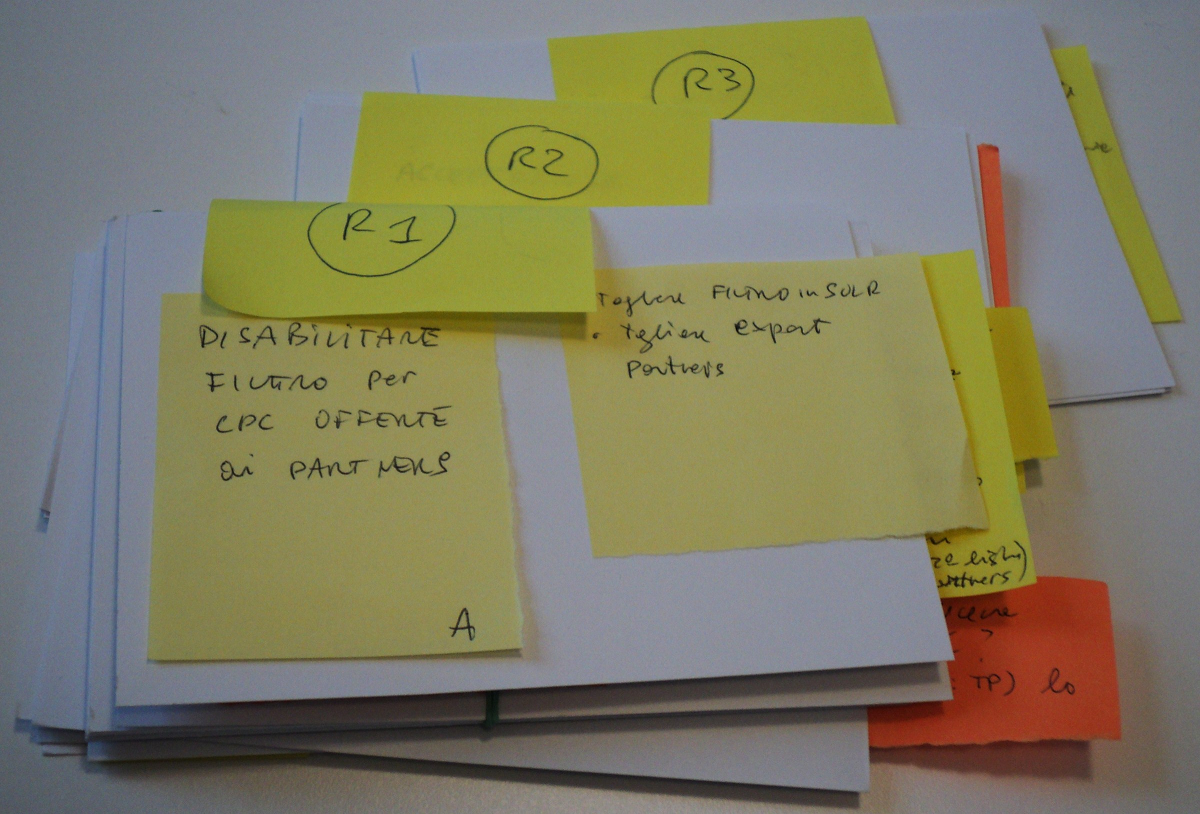 R3
R2
R1
DISABILITARE
FILTRO per
CPC OFFERTE
ai PARTNERS
A
Togliere FILTRO in SOLR
• Togliere export
partners
TP) lo